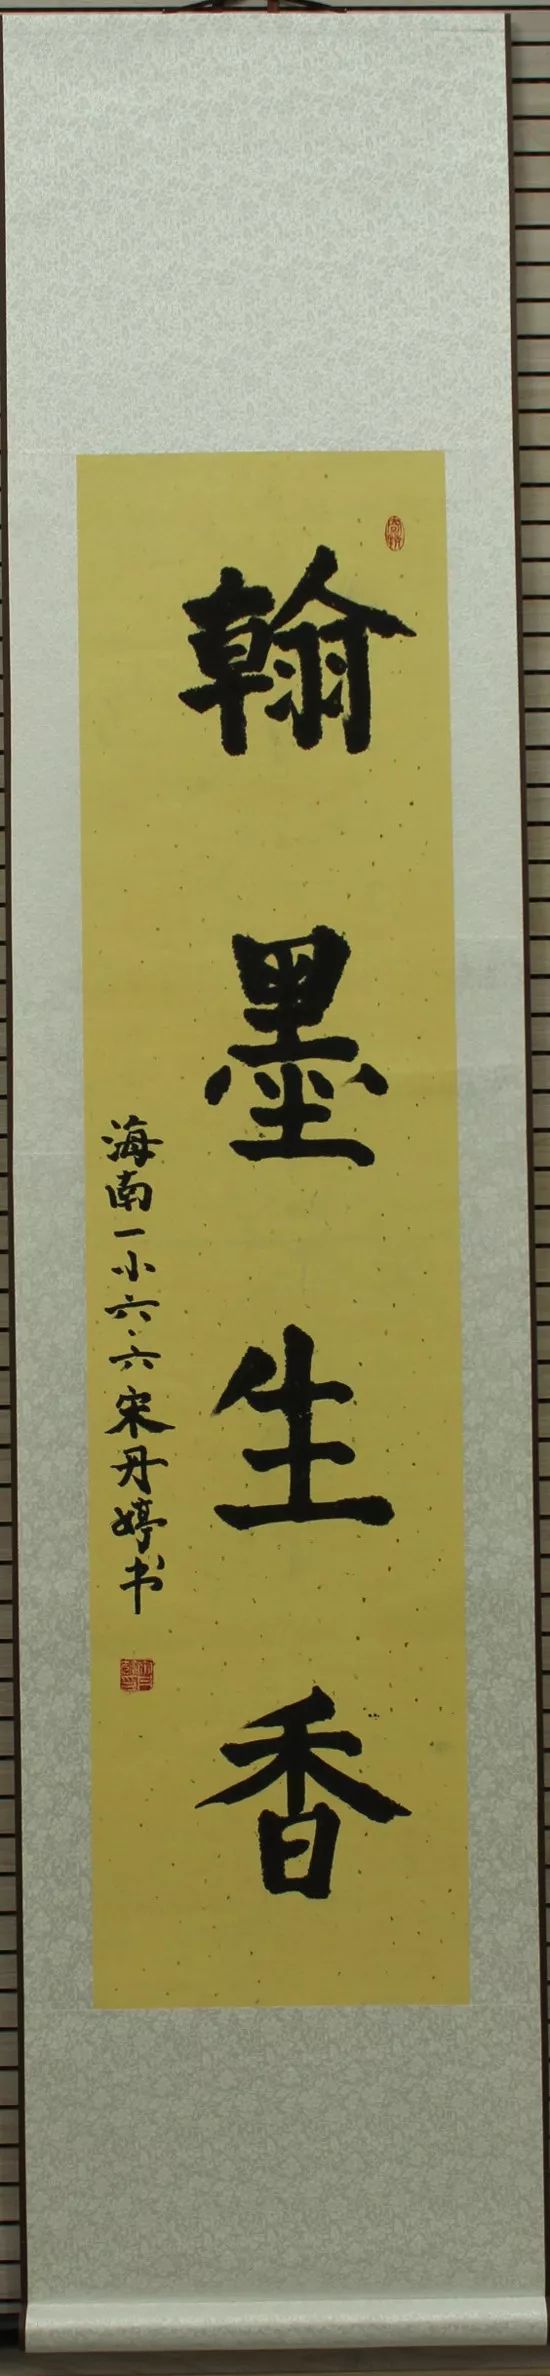 翰墨生香
海南一小六·六宋丹婷书